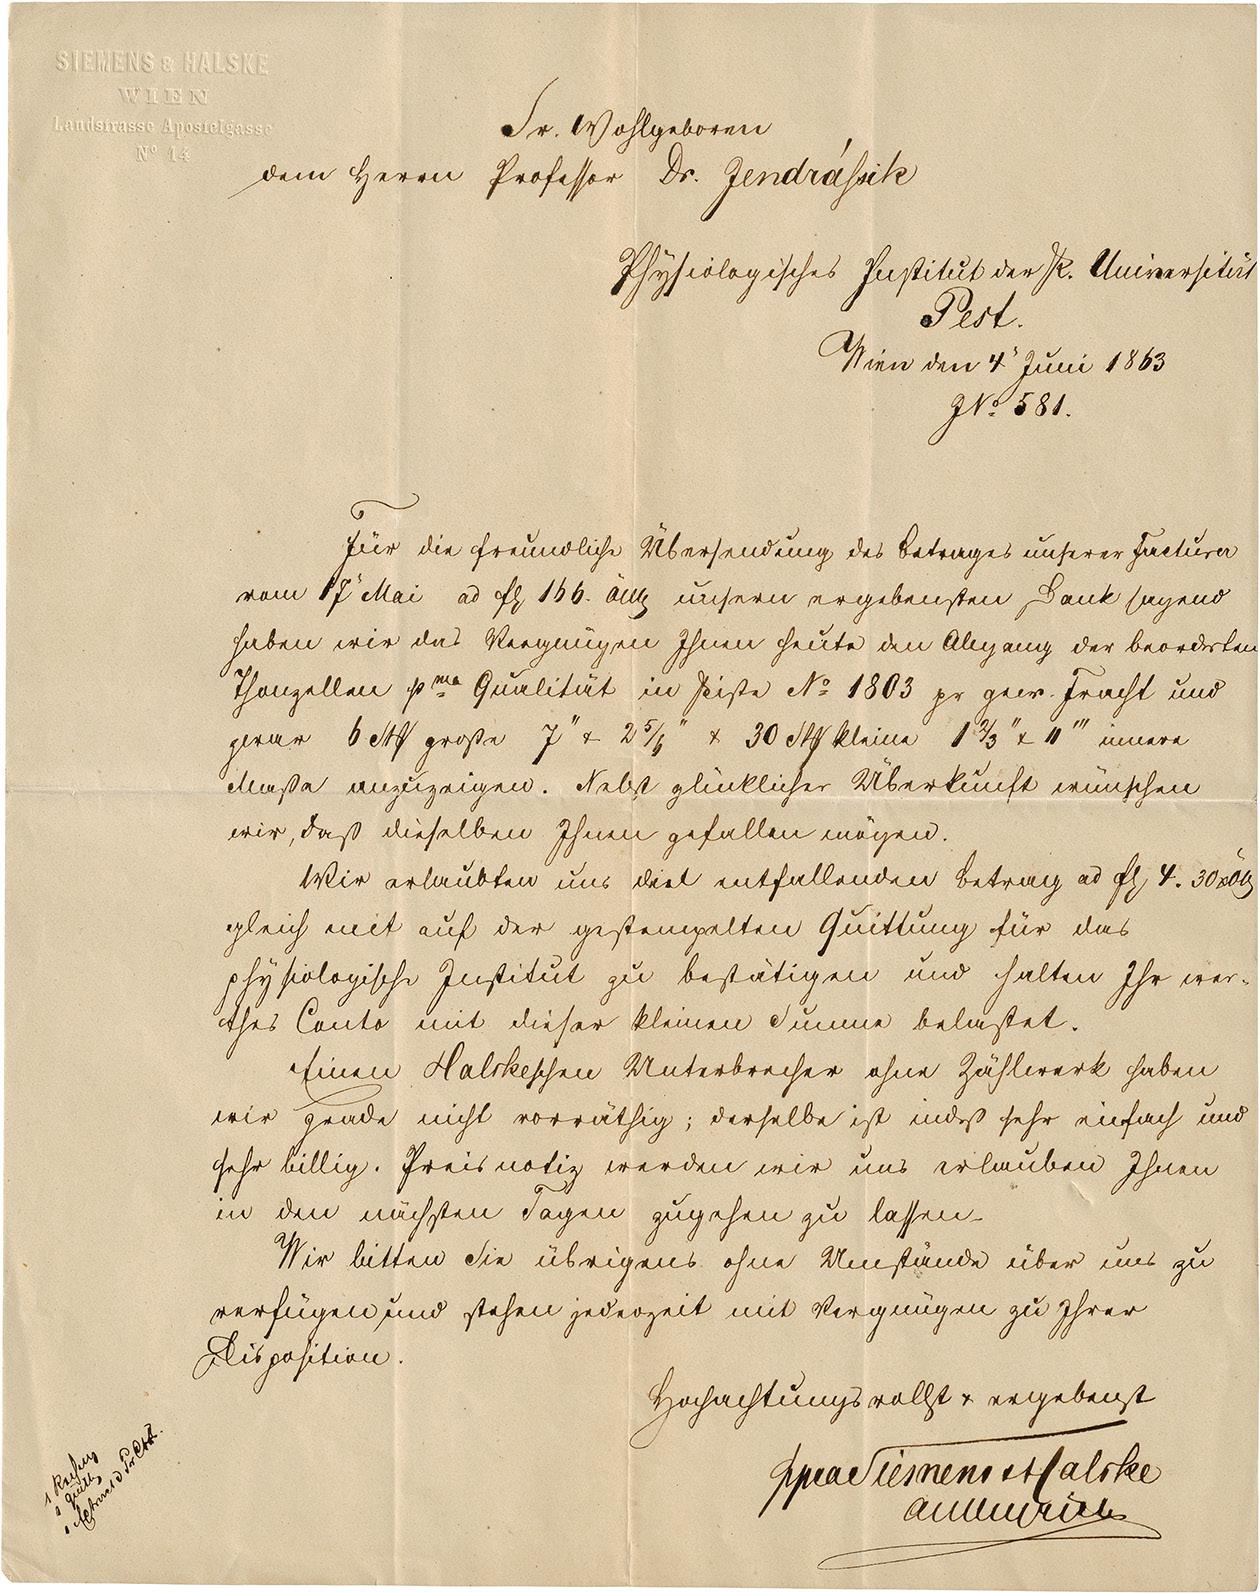 SIEMENS & HALSKE
WIEN
Landstrasse Apostelgasse
Nº 14
Sr. Wohlgeboren
dem Herrn Professor Dr. Jendrássik
Physiologisches Institut der K. Universität
Pest.
Wien den 4' Juni 1863
JNº 581.
Für die freundliche Übersendung des Betrages unserer Factura
vom 17' Mai ad fl 166. unsern ergebensten Dank sagend
haben wir das Vergnügen Ihnen heute den Abgang der beorderten
Thonzellen pma Qualität in Kiste Nº 1803 pr gew. Fracht und
zwar 6 Stk große 7" & 2 5/6" & 30 Stk kleine 1 2/3" & 11''' innere
Maße anzuzeigen. Nebst glücklicher Überkunft wünschen
wir, daß dieselben Ihnen gefallen mögen.
Wir erlaubten uns den entfallenden Betrag ad fl 4. 30
gleich mit auf der gestempelten Quittung für das
physiologische Institut zu bestätigen und halten Ihr wer-
thes Conto mit dieser kleinen Summe belastet.
Einen Halskeschen Unterbrecher ohne Zählwerk haben
wir grade nicht vorräthig; derselbe ist indeß sehr einfach und
sehr billig. Preisnotiz werden wir uns erlauben Ihnen
in den nächsten Tagen zugehen zu lassen.
Wir bitten Sie übrigens ohne Umstände über uns zu
verfügen und stehen jederzeit mit Vergnügen zu Ihrer
Disposition.
Hochachtungsvollst & ergebenst
ppa Siemens & Halske